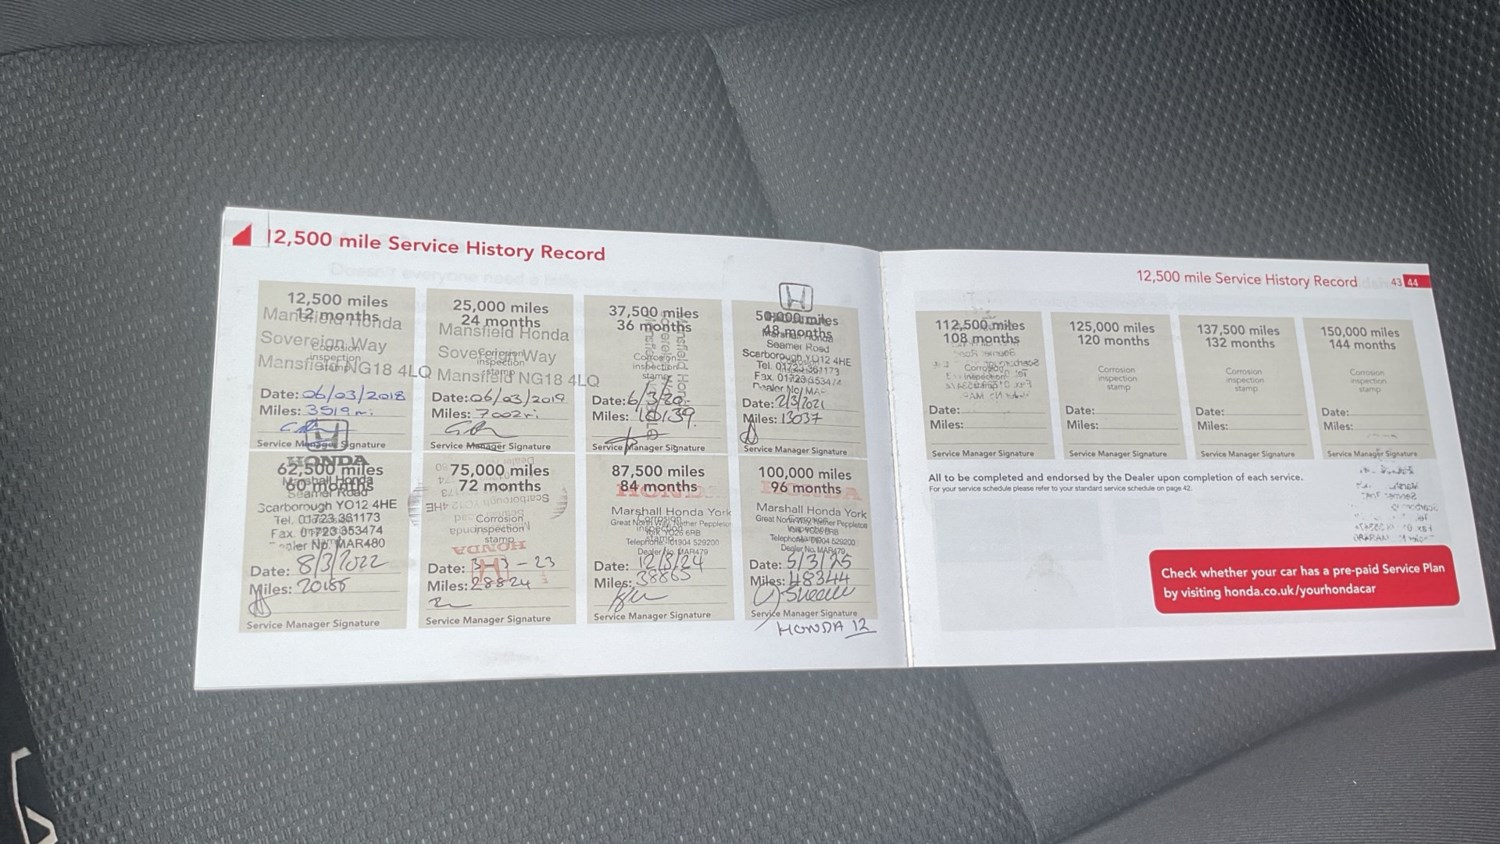 12,500 mile Service History Record
12,500 miles
12 months
Mansfield Honda
Sovereign Way
Corrosion
inspection
stamp
Mansfield NG18 4LQ
Date: 06/03/2018
Miles: 3519 mi
Service Manager Signature
25,000 miles
24 months
Mansfield Honda
Sovereign Way
Corrosion
inspection
stamp
Mansfield NG18 4LQ
Date: 06/03/2019
Miles: 7002mi
Service Manager Signature
37,500 miles
36 months
Corrosion
inspection
stamp
Date: 6/3/20.
Miles: 10139.
Service Manager Signature
50,000 miles
48 months
Marshall Honda
Seamer Road
Scarborough YO12 4HE
Tel. 01723 361173
Fax. 01723 353474
Date: 2/3/2021
Miles: 13037
Service Manager Signature
HONDA
62,500 miles
60 months
Marshall Honda
Seamer Road
Scarborough YO12 4HE
Tel. 01723 361173
Fax. 01723 353474
Dealer No. MAR480
Date: 8/3/2022
Miles:
Service Manager Signature
75,000 miles
72 months
Scarborough YO12 4HE
Corrosion
inspection
stamp
HONDA
Date: 3-3-23
Miles: 28824
Service Manager Signature
87,500 miles
84 months
HONDA
Marshall Honda York
Great North Way, Nether Poppleton
York YO26 6RB
Telephone 01904 529200
Dealer No. MAR479
Date: 12/3/24
Miles: 38865
Service Manager Signature
100,000 miles
96 months
HONDA
Marshall Honda York
Great North Way, Nether Poppleton
York YO26 6RB
Telephone 01904 529200
Dealer No. MAR479
Date: 5/3/25
Miles: 48344
Service Manager Signature
HONDA 12
12,500 mile Service History Record 43 44
112,500 miles
108 months
Corrosion
inspection
stamp
Date:
Miles:
Service Manager Signature
125,000 miles
120 months
Corrosion
inspection
stamp
Date:
Miles:
Service Manager Signature
137,500 miles
132 months
Corrosion
inspection
stamp
Date:
Miles:
Service Manager Signature
150,000 miles
144 months
Corrosion
inspection
stamp
Date:
Miles:
Service Manager Signature
All to be completed and endorsed by the Dealer upon completion of each service.
For your service schedule please refer to your standard service schedule on page 42.
Check whether your car has a pre-paid Service Plan
by visiting honda.co.uk/yourhondacar